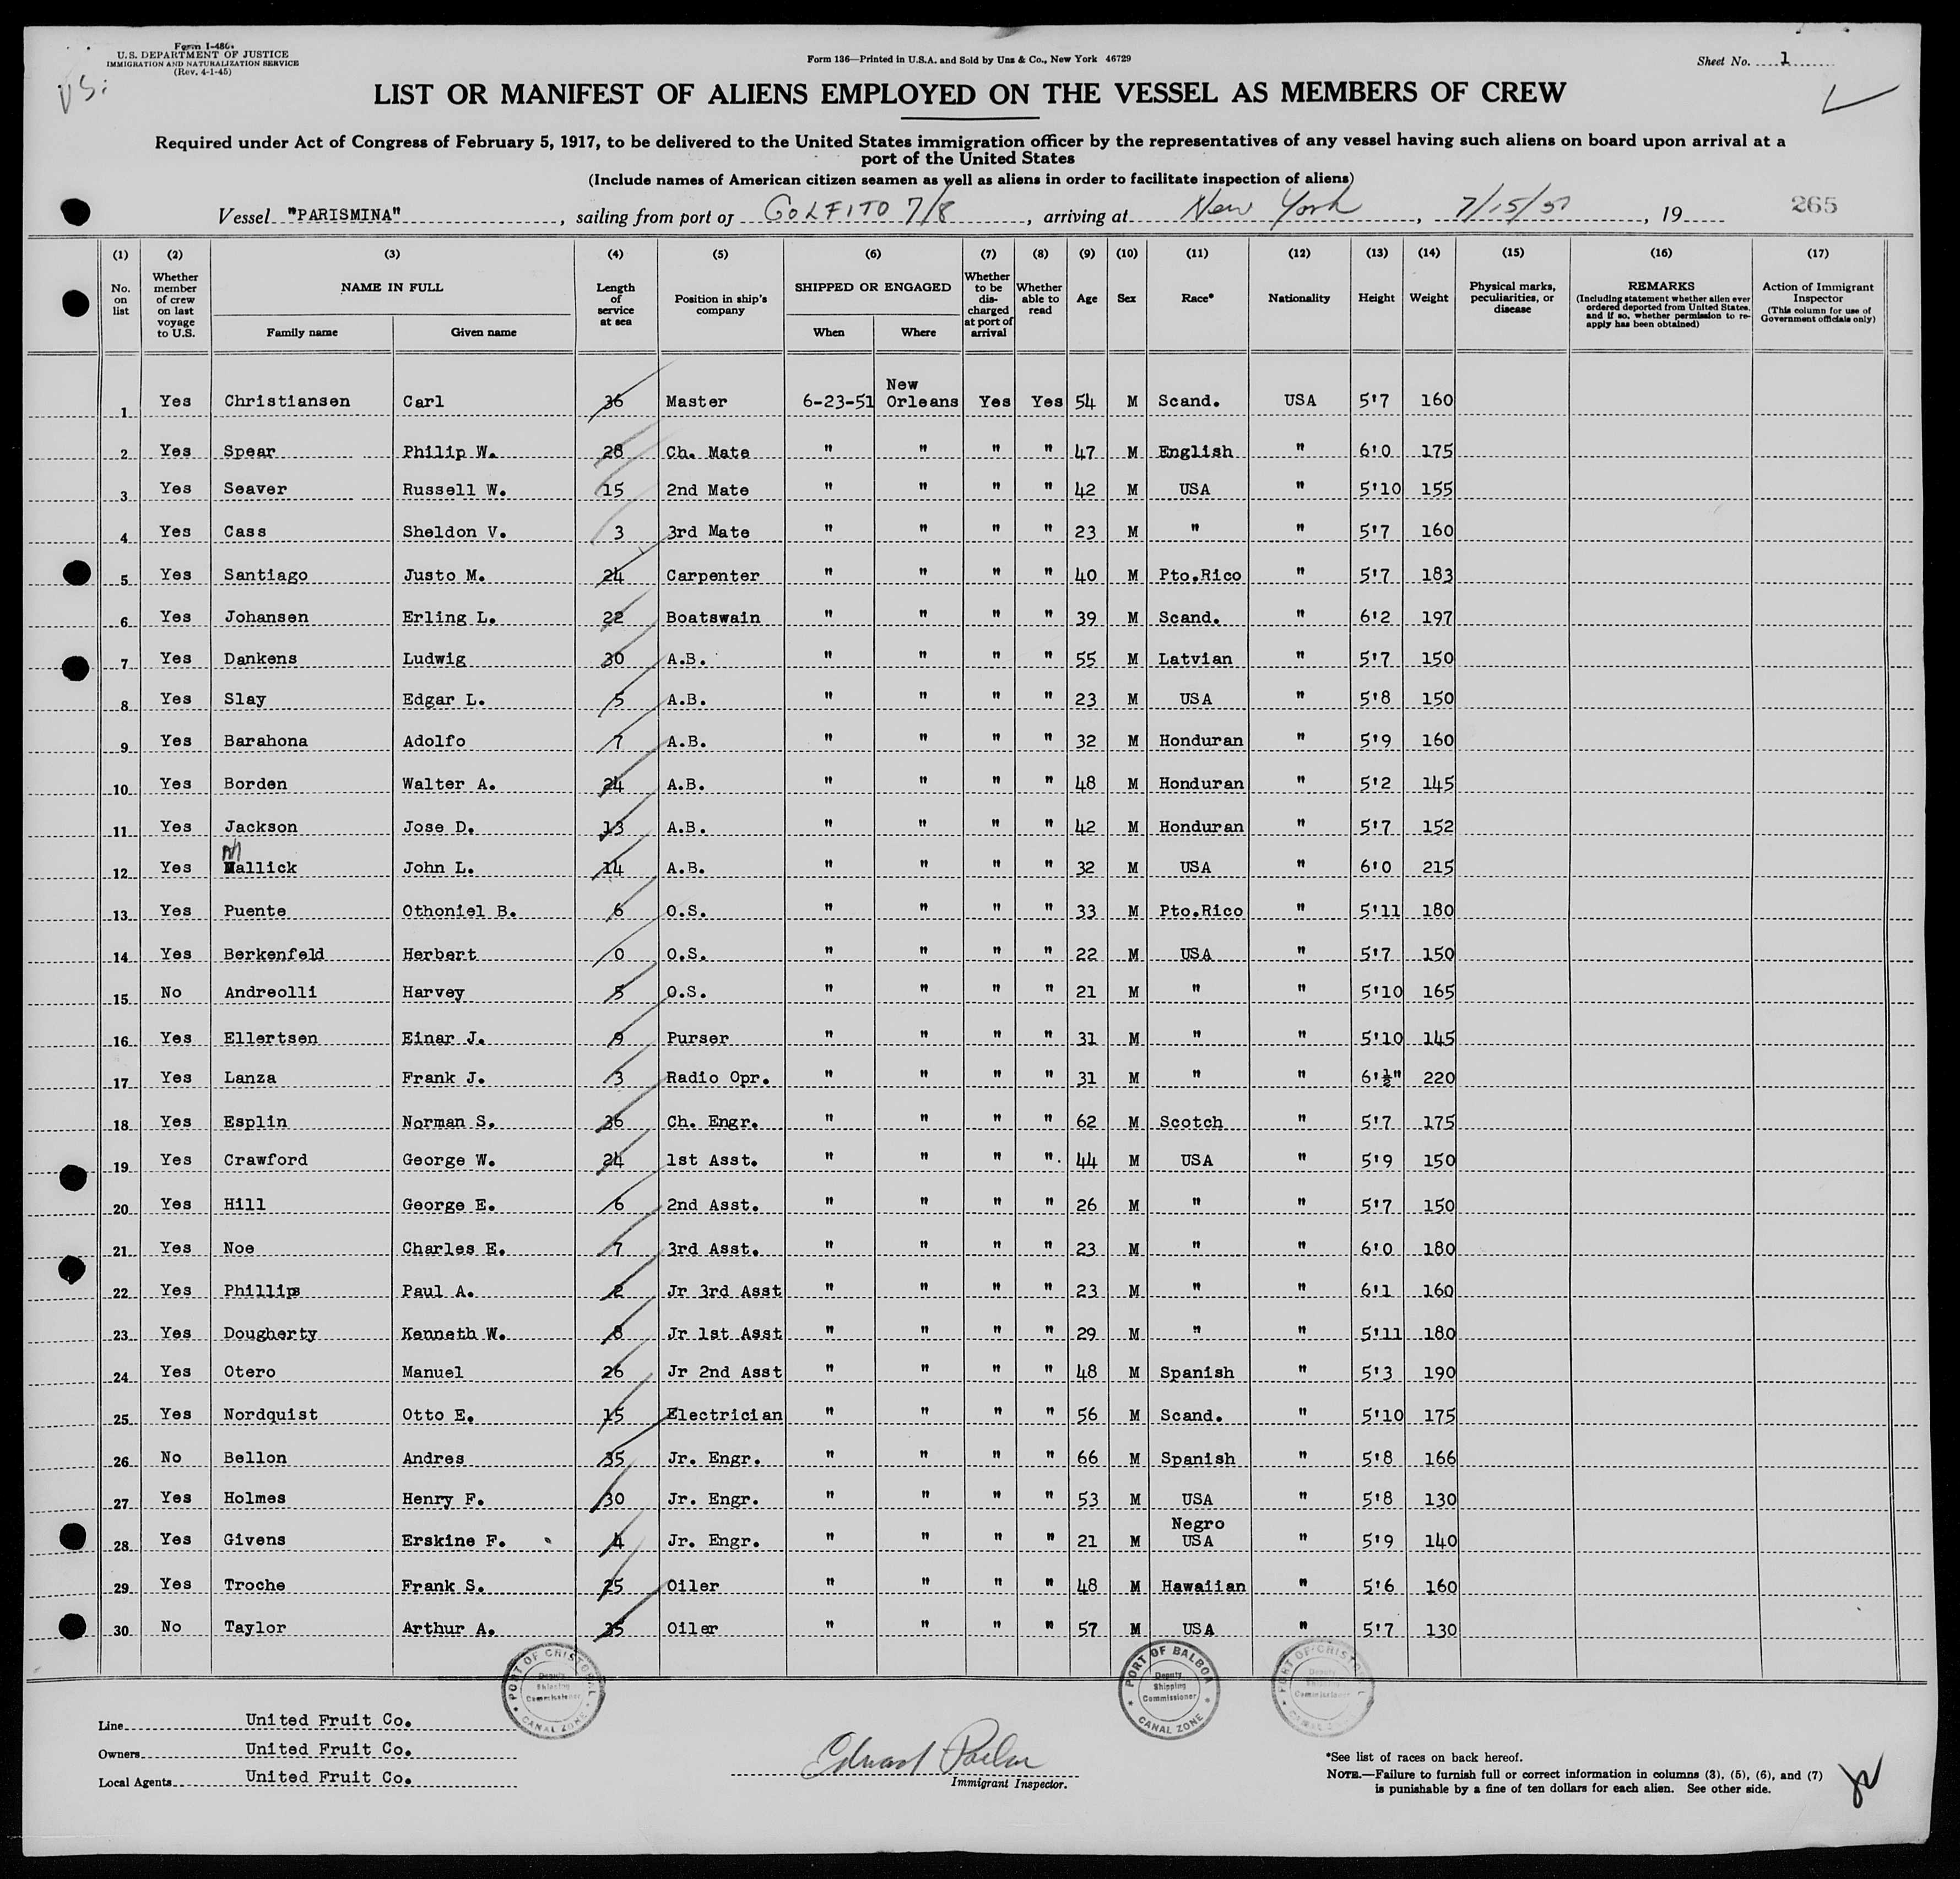 Form I-486
U.S. DEPARTMENT OF JUSTICE
IMMIGRATION AND NATURALIZATION SERVICE
(Rev. 4-1-45)
Form 136—Printed in U.S.A. and Sold by Unz & Co., New York 46729
Sheet No. 1
LIST OR MANIFEST OF ALIENS EMPLOYED ON THE VESSEL AS MEMBERS OF CREW
Required under Act of Congress of February 5, 1917, to be delivered to the United States immigration officer by the representatives of any vessel having such aliens on board upon arrival at a
port of the United States
(Include names of American citizen seamen as well as aliens in order to facilitate inspection of aliens)
Vessel "PARISMINA", sailing from port of GOLFITO 7/8, arriving at New York, 7/15/51, 19
265
(1) (2) (3) (4) (5) (6) (7) (8) (9) (10) (11) (12) (13) (14) (15) (16) (17)
No. on list
Whether member of crew on last voyage to U.S.
NAME IN FULL
Family name Given name
Length of service at sea
Position in ship's company
SHIPPED OR ENGAGED
When Where
Whether to be discharged at port of arrival
Whether able to read
Age
Sex
Race*
Nationality
Height
Weight
Physical marks, peculiarities, or disease
REMARKS
(Including statement whether alien ever ordered deported from United States, and if so, whether permission to reapply has been obtained)
Action of Immigrant Inspector
(This column for use of Government officials only)
1 Yes Christiansen Carl 36 Master 6-23-51 New Orleans Yes Yes 54 M Scand. USA 5'7 160
2 Yes Spear Philip W. 28 Ch. Mate " " " " 47 M English " 6'0 175
3 Yes Seaver Russell W. 15 2nd Mate " " " " 42 M USA " 5'10 155
4 Yes Cass Sheldon V. 3 3rd Mate " " " " 23 M " " 5'7 160
5 Yes Santiago Justo M. 24 Carpenter " " " " 40 M Pto.Rico " 5'7 183
6 Yes Johansen Erling L. 22 Boatswain " " " " 39 M Scand. " 6'2 197
7 Yes Dankens Ludwig 30 A.B. " " " " 55 M Latvian " 5'7 150
8 Yes Slay Edgar L. 5 A.B. " " " " 23 M USA " 5'8 150
9 Yes Barahona Adolfo 7 A.B. " " " " 32 M Honduran " 5'9 160
10 Yes Borden Walter A. 24 A.B. " " " " 48 M Honduran " 5'2 145
11 Yes Jackson Jose D. 13 A.B. " " " " 42 M Honduran " 5'7 152
12 Yes Mallick John L. 14 A.B. " " " " 32 M USA " 6'0 215
13 Yes Puente Othoniel B. 6 O.S. " " " " 33 M Pto.Rico " 5'11 180
14 Yes Berkenfeld Herbert 0 O.S. " " " " 22 M USA " 5'7 150
15 No Andreolli Harvey 5 O.S. " " " " 21 M " " 5'10 165
16 Yes Ellertsen Einar J. 9 Purser " " " " 31 M " " 5'10 145
17 Yes Lanza Frank J. 3 Radio Opr. " " " " 31 M " " 6'½" 220
18 Yes Esplin Norman S. 36 Ch. Engr. " " " " 62 M Scotch " 5'7 175
19 Yes Crawford George W. 24 1st Asst. " " " " 44 M USA " 5'9 150
20 Yes Hill George E. 6 2nd Asst. " " " " 26 M " " 5'7 150
21 Yes Noe Charles E. 7 3rd Asst. " " " " 23 M " " 6'0 180
22 Yes Phillips Paul A. 2 Jr 3rd Asst " " " " 23 M " " 6'1 160
23 Yes Dougherty Kenneth W. 8 Jr 1st Asst " " " " 29 M " " 5'11 180
24 Yes Otero Manuel 26 Jr 2nd Asst " " " " 48 M Spanish " 5'3 190
25 Yes Nordquist Otto E. 15 Electrician " " " " 56 M Scand. " 5'10 175
26 No Bellon Andres 35 Jr. Engr. " " " " 66 M Spanish " 5'8 166
27 Yes Holmes Henry F. 30 Jr. Engr. " " " " 53 M USA " 5'8 130
28 Yes Givens Erskine F. 4 Jr. Engr. " " " " 21 M Negro USA " 5'9 140
29 Yes Troche Frank S. 25 Oiler " " " " 48 M Hawaiian " 5'6 160
30 No Taylor Arthur A. 35 Oiler " " " " 57 M USA " 5'7 130
PORT OF CRISTOBAL Deputy Shipping Commissioner CANAL ZONE
PORT OF BALBOA Deputy Shipping Commissioner CANAL ZONE
PORT OF CRISTOBAL Deputy Shipping Commissioner CANAL ZONE
Line United Fruit Co.
Owners United Fruit Co.
Local Agents United Fruit Co.
Edward
Immigrant Inspector.
*See list of races on back hereof.
NOTE.—Failure to furnish full or correct information in columns (3), (5), (6), and (7)
is punishable by a fine of ten dollars for each alien. See other side.